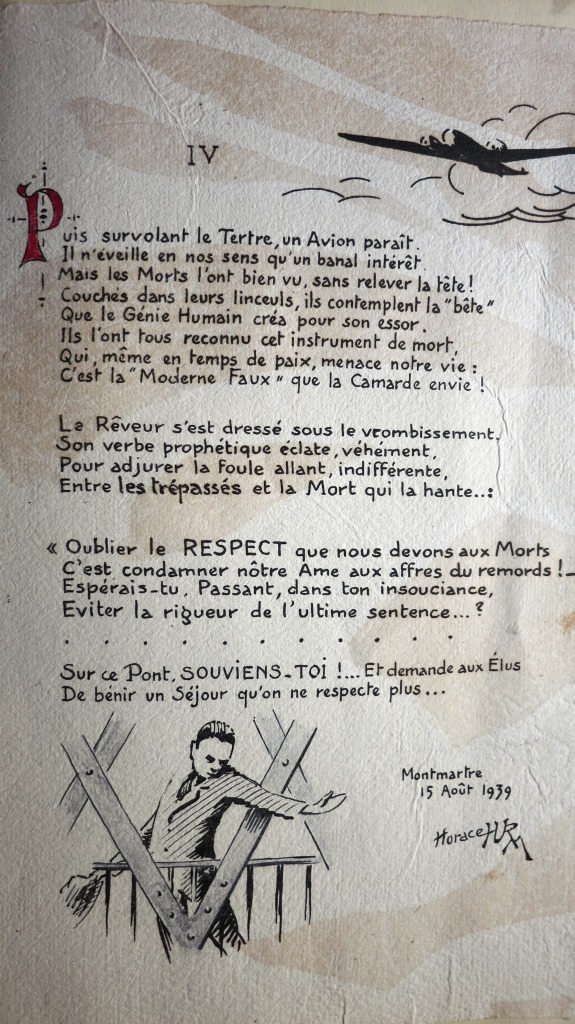 IV
Puis survolant le Tertre, un Avion paraît.
Il n'éveille en nos sens qu'un banal intérêt.
Mais les Morts l'ont bien vu, sans relever la tête !
Couchés dans leurs linceuls, ils contemplent la "bête"
Que le Génie Humain créa pour son essor.
Ils l'ont tous reconnu cet instrument de mort,
Qui, même en temps de paix, menace notre vie :
C'est la "Moderne Faux" que la Camarde envie !
Le Rêveur s'est dressé sous le vrombissement.
Son verbe prophétique éclate, véhément,
Pour adjurer la foule allant, indifférente,
Entre les trépassés et la Mort qui la hante..:
« Oublier le RESPECT que nous devons aux Morts
C'est condamner nôtre Ame aux affres du remords ! _
Espérais-tu, Passant, dans ton insouciance,
Eviter la rigueur de l'ultime sentence... ?
. . . . . . . . . . . . .
Sur ce Pont, SOUVIENS-TOI !... Et demande aux Élus
De bénir un Séjour qu'on ne respecte plus...
Montmartre
15 Août 1939
Horace